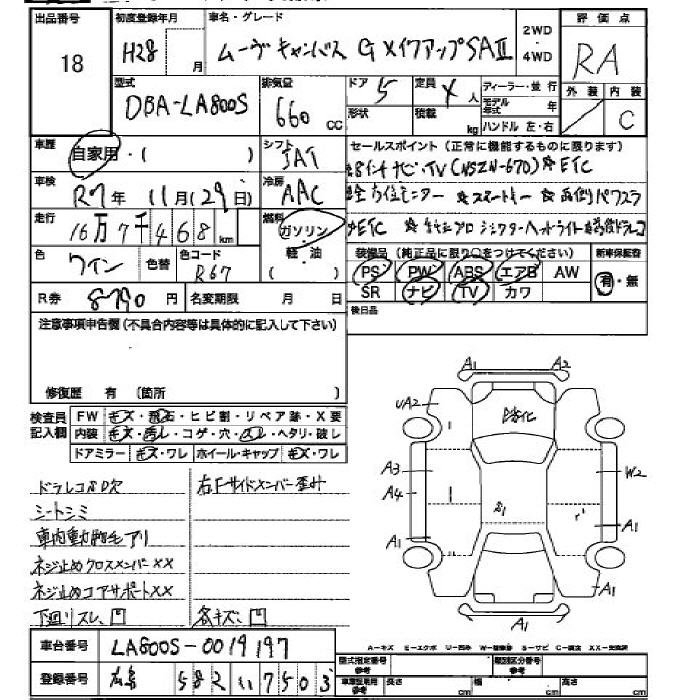 出品番号 初度登録年月 車名・グレード 2WD 評価点
18 H28 月 ムーヴキャンバス G メイクアップ SAⅡ ・4WD RA
型式 排気量 ドア 定員 ディーラー・並行 外装 内装
DBA-LA800S 660 cc 5 4 人 モデル年式 年
形状 積載 kg ハンドル 左・右 C
車歴 自家用・( ) シフト IAT セールスポイント(正常に機能するものに限ります)
8インチナビ・TV(NSZN-Z70) ☆ETC
車検 R7年 11月(29日) 冷房 AAC 全方位モニター ☆スマートキー ☆両側パワスラ
走行 16万7千468km 燃料 ガソリン ☆ETC
軽・油 ( )
色 ワイン 色替 色コード R67
装備品(純正品に限り○をつけてください) 新車保証書
PS PW ABS エアB AW 有・無
SR ナビ TV カワ
R券 8790円 名変期限 月 日
後日品
注意事項申告欄(不具合内容等は具体的に記入して下さい)
修復歴 有 〔箇所 〕
検査員記入欄 FW キズ・飛石・ヒビ割・リペア跡・X要
内装 キズ・汚レ・コゲ・穴・スレ・ヘタリ・破レ
ドアミラー キズ・ワレ ホイール・キャップ キズ・ワレ
ドラレコSD欠 右Fサイドメンバー歪み
シートシミ
車内動物毛アリ
ネジ止めクロスメンバーXX
ネジ止めコアサポートXX
下回りスレ、凹 各キズ、凹
車台番号 LA800S-0019197
登録番号 広島 582 117503
A1 A2
UA2 ガラス
A3 W2
A4 S1
A1 A1
A1 A1
A-キズ E-エクボ U-凹み W-補修跡 S-サビ C-腐食 XX-交換済
型式指定番号 参考 類別区分番号 参考
車車証寸法 参考 長さ cm 幅 cm 高さ cm